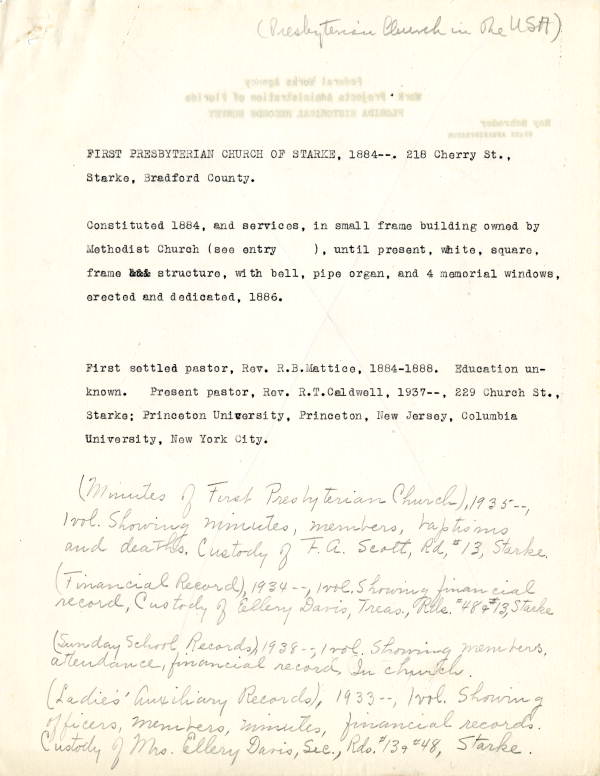 (Presbyterian Church in the USA)
Federal Works Agency
Work Projects Administration of Florida
FLORIDA HISTORICAL RECORDS SURVEY
Roy Schroder
STATE ADMINISTRATOR
FIRST PRESBYTERIAN CHURCH OF STARKE, 1884--. 218 Cherry St.,
Starke, Bradford County.
Constituted 1884, and services, in small frame building owned by
Methodist Church (see entry     ), until present, white, square,
frame &&& structure, with bell, pipe organ, and 4 memorial windows,
erected and dedicated, 1886.
First settled pastor, Rev. R.B.Mattice, 1884-1888. Education un-
known.  Present pastor, Rev. R.T.Caldwell, 1937--, 229 Church St.,
Starke; Princeton University, Princeton, New Jersey, Columbia
University, New York City.
(Minutes of First Presbyterian Church), 1935--,
1 vol. Showing minutes, members, baptisms
and deaths. Custody of F.A. Scott, Rd, #13, Starke.
(Financial Record), 1934--, 1 vol. Showing financial
record, Custody of Ellery Davis, Treas., Rds. #48 & #13, Starke
(Sunday School Records), 1938--, 1 vol. Showing members,
attendance, financial record. In church.
(Ladies' Auxiliary Records), 1933--, 1 vol. Showing
officers, members, minutes, financial records.
Custody of Mrs. Ellery Davis, Sec., Rds. #13 & #48, Starke.